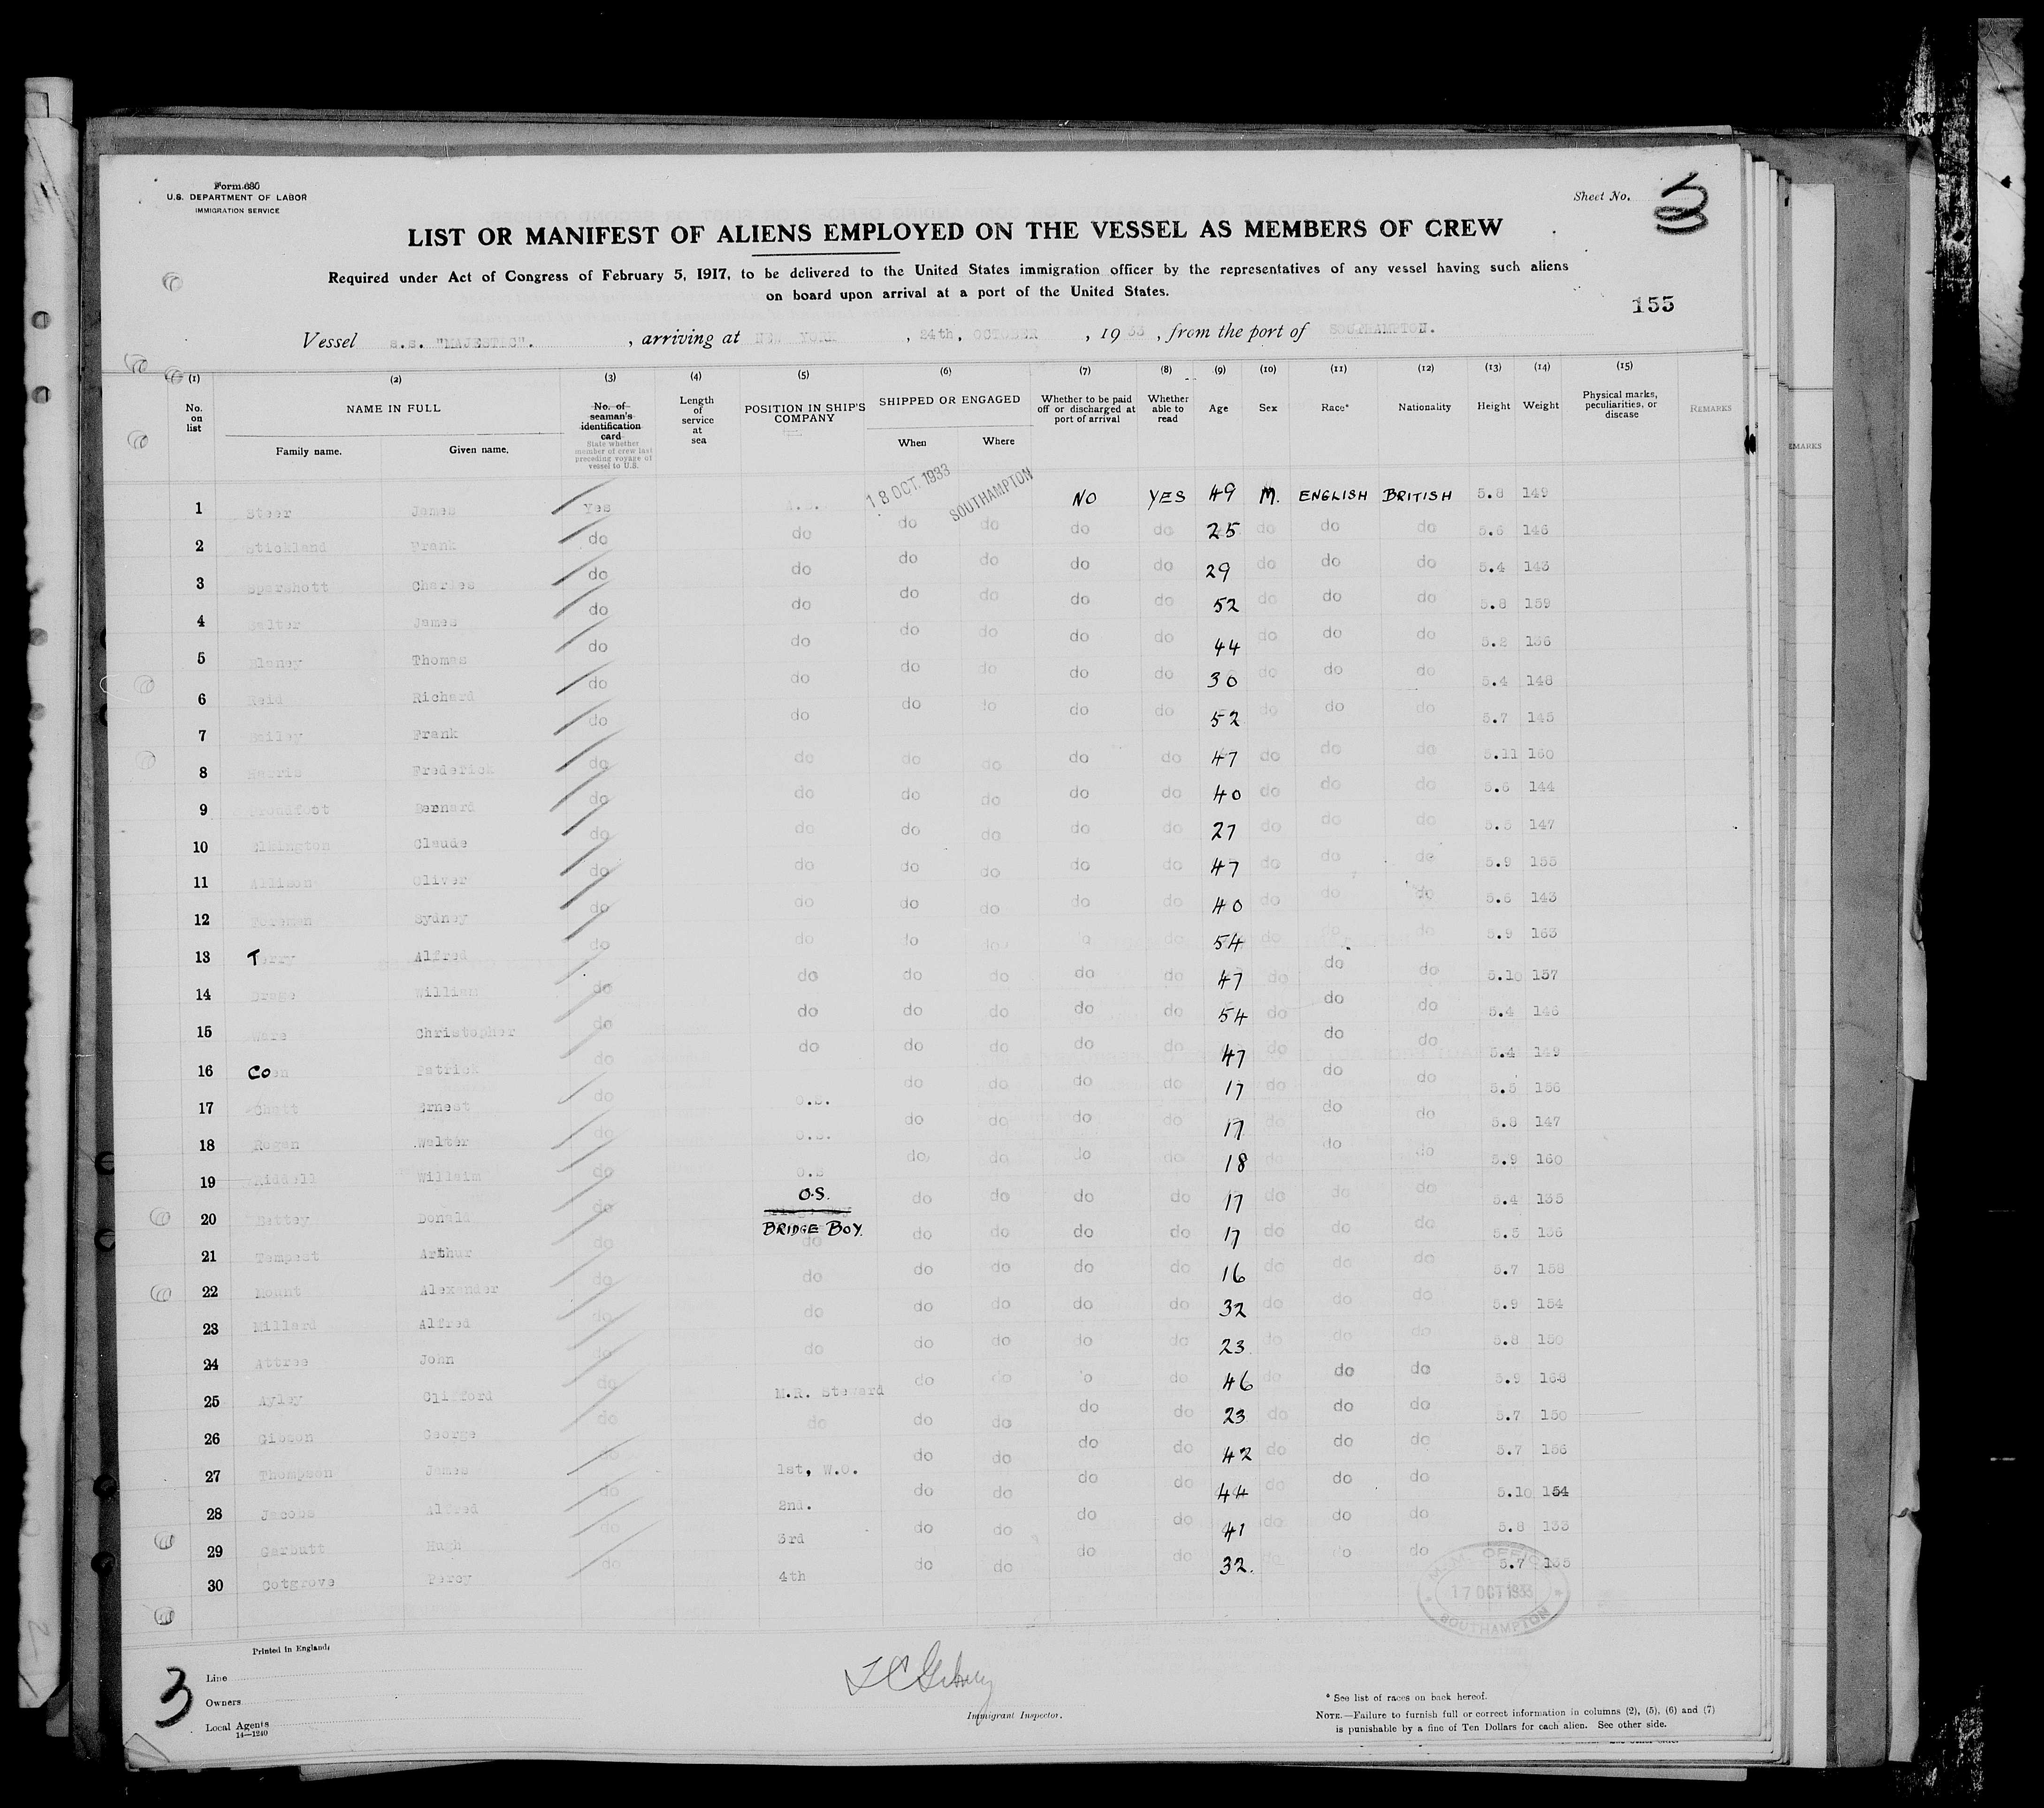 Form 680
U.S. DEPARTMENT OF LABOR
IMMIGRATION SERVICE
Sheet No. 3
LIST OR MANIFEST OF ALIENS EMPLOYED ON THE VESSEL AS MEMBERS OF CREW
Required under Act of Congress of February 5, 1917, to be delivered to the United States immigration officer by the representatives of any vessel having such aliens
on board upon arrival at a port of the United States.
155
Vessel s.s. "MAJESTIC". , arriving at NEW YORK , 24th, OCTOBER , 1933 , from the port of SOUTHAMPTON.
(1) (2) (3) (4) (5) (6) (7) (8) (9) (10) (11) (12) (13) (14) (15)
No. on list NAME IN FULL Family name. Given name. No. of seaman's identification card State whether member of crew last preceding voyage of vessel to U.S. Length of service at sea POSITION IN SHIP'S COMPANY SHIPPED OR ENGAGED When Where Whether to be paid off or discharged at port of arrival Whether able to read Age Sex Race* Nationality Height Weight Physical marks, peculiarities, or disease REMARKS
EMARKS
1 Steer James Yes A.B. 18 OCT. 1933 SOUTHAMPTON NO YES 49 M. ENGLISH BRITISH 5.8 149
2 Stickland Frank do do do do do do 25 do do do 5.6 146
3 Sparshott Charles do do do do do do 29 do do do 5.4 143
4 Salter James do do do do do do 52 do do do 5.8 159
5 Blaney Thomas do do do do do do 44 do do do 5.2 136
6 Reid Richard do do do do do do 30 do do do 5.4 148
7 Frank do do do do do do 52 do do do 5.7 145
8 Harris Frederick do do do do do do 47 do do do 5.11 160
9 Proudfoot Bernard do do do do do do 40 do do do 5.6 144
10 Elkington Claude do do do do do do 27 do do do 5.5 147
11 Allison Oliver do do do do do do 47 do do do 5.9 155
12 Foreman Sydney do do do do do do 40 do do do 5.6 143
13 Terry Alfred do do do do do do 54 do do do 5.9 163
14 Drage William do do do do do do 47 do do do 5.10 157
15 Ware Christopher do do do do do do 54 do do do 5.4 146
16 Coen Patrick do do do do do do 47 do do do 5.4 149
17 Chatt Ernest do O.S. do do do do 17 do do do 5.5 156
18 Rogan Walter do O.S. do do do do 17 do do do 5.8 147
19 Riddell Willaim do O.S do do do do 18 do do do 5.9 160
20 Bettey Donald do O.S. do do do do 17 do do do 5.4 135
21 Tempest Arthur do BRIDGE BOY. do do do do do 17 do do do 5.5 136
22 Mount Alexander do do do do do do 16 do do do 5.7 158
23 Millard Alfred do do do do do do 32 do do do 5.9 154
24 Attree John do do do do do do 23 do do do 5.8 150
25 Ayley Clifford do M.R. Steward do do do do 46 do do do 5.9 168
26 Gibson George do do do do do do 23 do do do 5.7 150
27 Thompson James do 1st, W.O. do do do do 42 do do do 5.7 156
28 Jacobs Alfred do 2nd. do do do do 44 do do do 5.10 154
29 Garbutt Hugh do 3rd do do do do 41 do do do 5.8 133
30 Cotgrove Percy do 4th do do do do 32. do do do 5.7 135
M.M. OFFICE
17 OCT 1933
SOUTHAMPTON
Printed in England.
3
Line
Owners
Local Agents
14—1240
Immigrant Inspector.
* See list of races on back hereof.
NOTE.—Failure to furnish full or correct information in columns (2), (5), (6) and (7)
is punishable by a fine of Ten Dollars for each alien. See other side.